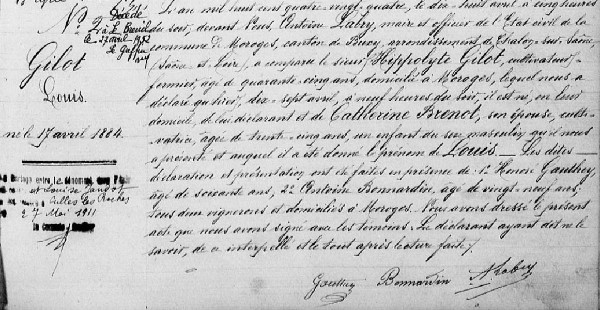 Décédé
N°
à Le Breuil
le 27 avril 1972
Le Greffier
Gilot
Louis.
né le 17 avril 1884.
et Louise Jangot
Celles les Roches
27 Mai 1911
L'an mil huit cent quatre-vingt-quatre, le dix-huit avril à cinq heures
du soir, devant Nous, Antoine Labry, maire et officier de l'État civil de la
commune de Moroges, canton de Buxy, arrondissement de Chalon-sur-Saône,
(Saône-et-Loire), a comparu le sieur Hippolyte Gilot, cultivateur-
fermier, âgé de quarante-cinq ans, domicilié à Moroges, lequel nous a
déclaré qu'hier, dix-sept avril, à neuf heures du soir, il est né, en leur
domicile, de lui déclarant et de Catherine Brenot, son épouse, culti-
vatrice, âgée de trente-cinq ans, un enfant du sexe masculin qu'il nous
a présenté et auquel il a été donné le prénom de Louis — Les dites
déclaration et présentation ont été faites en présence de 1° Honoré Gauthey,
âgé de soixante ans, 2° Antoine Bonnardin, âgé de vingt-neuf ans,
tous deux vignerons et domiciliés à Moroges. Nous avons dressé le présent
acte que nous avons signé avec les témoins. Le déclarant ayant dit ne le
savoir, de ce interpellé et le tout après lecture faite./.
Gauthey Bonnardin A Labry